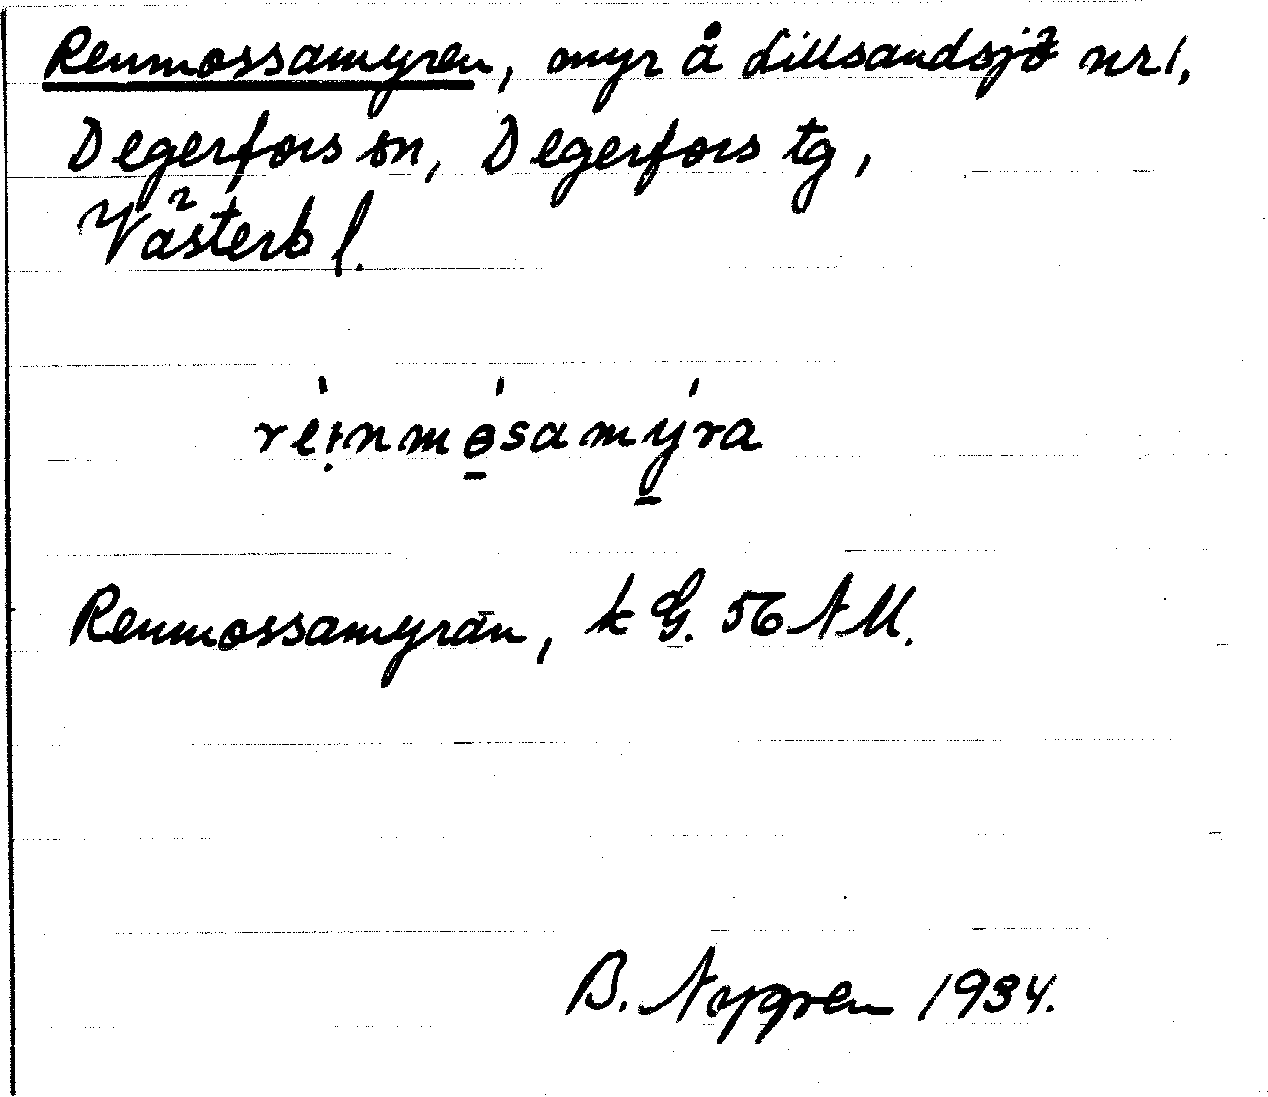 Renmossamyren, myr å Lillsandsjö nr 1,
Degerfors sn, Degerfors tg,
Västerb l.
rei̯nmo̲samy̲ra
Renmossamyrän, k G. 56 NM.
B. Nygren 1934.